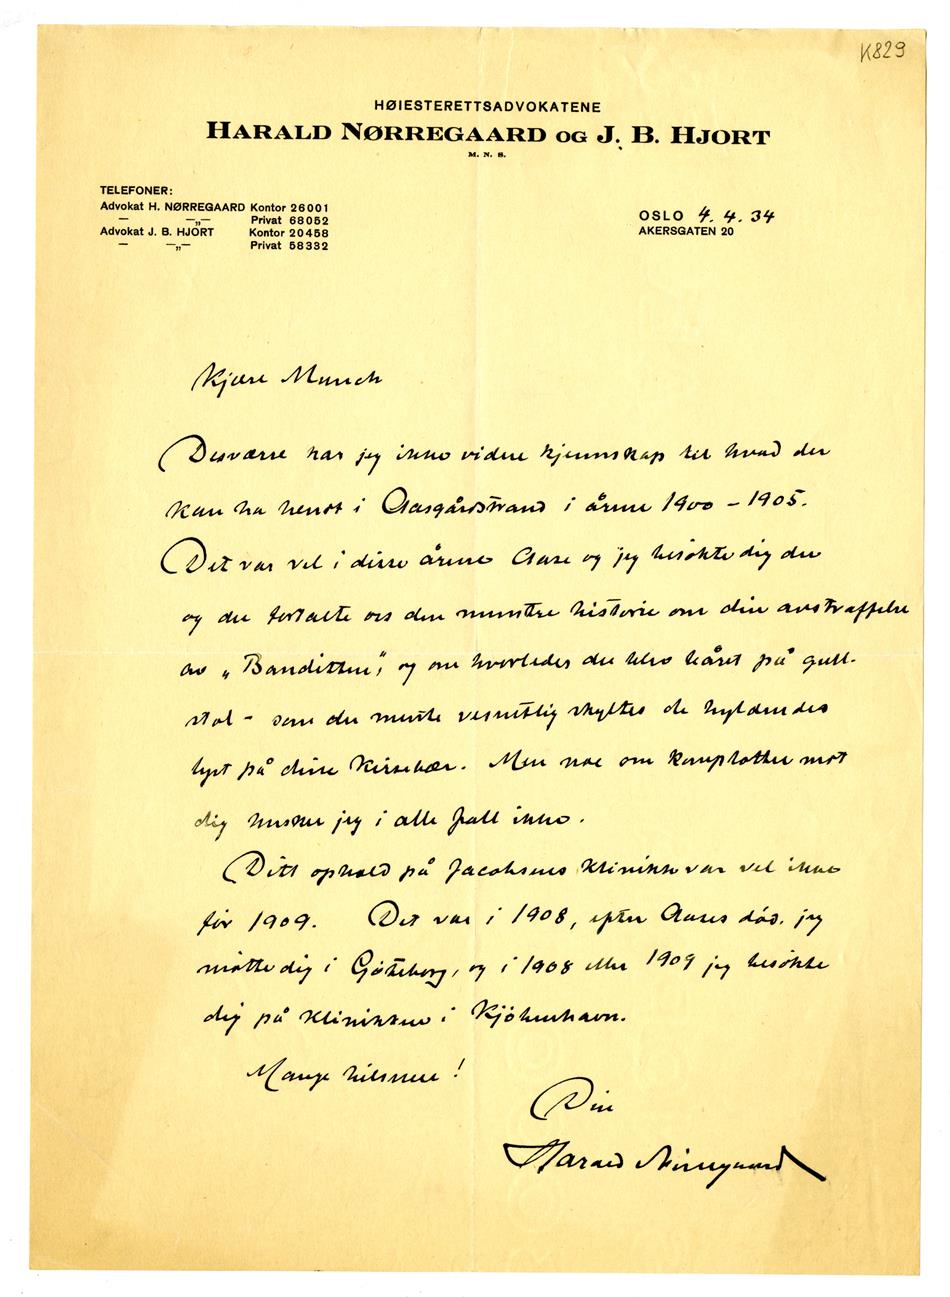 K829
HØIESTERETTSADVOKATENE
HARALD NØRREGAARD OG J. B. HJORT
M. N. S.
TELEFONER:
Advokat H. NØRREGAARD Kontor 26001
— —„— Privat 68052
Advokat J. B. HJORT Kontor 20458
— —„— Privat 58332
OSLO 4.4.34
AKERSGATEN 20
Kjære Munch
Desværre har jeg ikke videre kjennskap til hvad der
kan ha hendt i Aasgårdstrand i årene 1900 – 1905.
Det var vel i disse årene Aase og jeg besökte dig der
og du fortalte oss den muntre historie om din avstraffelse
av „Banditten", og om hvorledes du blev båret på gull-
stol – som du mente vesentlig skyltes de hyldendes
lyst på dine kirsebær. Men noe om komplotter mot
dig husker jeg i alle fall ikke.
Ditt ophold på Jacobsens klinikk var vel ikke
för 1909. Det var i 1908, efter Aases död, jeg
møtte dig i Göteborg, og i 1908 eller 1909 jeg besökte
dig på klinikken i Kjöbenhavn.
Mange hilsener!
Din
Harald Nörregaard